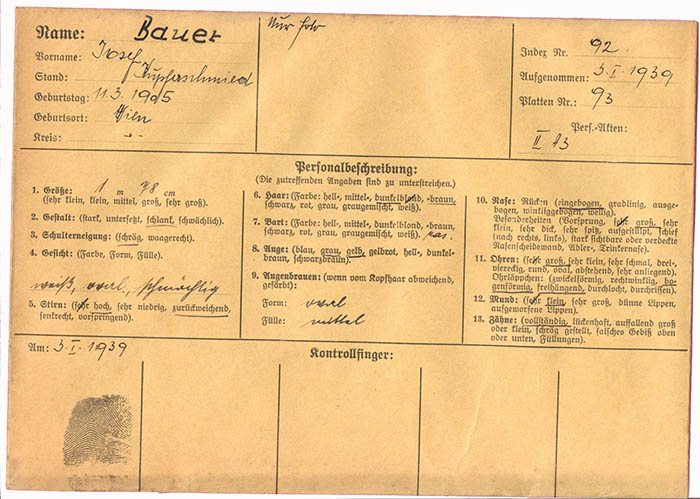 Name: Bauer
Vorname: Josef
Stand: Kupferschmied
Geburtstag: 11.3.1905
Geburtsort: Wien
Kreis: -"-
Nur Foto
Index Nr. 92.
Aufgenommen: 3.I.1939
Platten Nr.: 93
Pers.-Akten:
II A3
Personalbeschreibung:
(Die zutreffenden Angaben sind zu unterstreichen.)
1. Größe: 1 m 78 cm
(sehr klein, klein, mittel, groß, sehr groß).
2. Gestalt: (stark, untersetzt, schlank, schwächlich).
3. Schulterneigung: (schräg, waagerecht).
4. Gesicht: (Farbe, Form, Fülle).
weiß, oval, schmächtig
5. Stirn: (sehr hoch, sehr niedrig, zurückweichend,
senkrecht, vorspringend).
6. Haar: (Farbe: hell-, mittel-, dunkelblond, -braun,
schwarz, rot, grau, graugemischt, weiß).
7. Bart: (Farbe: hell-, mittel-, dunkelblond, -braun,
schwarz, rot, grau, graugemischt, weiß). ras.
8. Auge: (blau, grau, gelb, gelbrot, hell-, dunkel-
braun, schwarzbraun).
9. Augenbrauen: (wenn vom Kopfhaar abweichend,
gefärbt):
Form: oval
Fülle: mittel
10. Nase: Rücken (eingebogen, gradlinig, ausge-
bogen, winkliggebogen, wellig).
Besonderheiten (Vorsprung, sehr groß, sehr
klein, sehr dick, sehr spitz, aufgestülpt, schief
(nach rechts, links), stark sichtbare oder verdeckte
Nasenscheidewand, Adler-, Trinkernase).
11. Ohren: (sehr groß, sehr klein, sehr schmal, drei-,
viereckig, rund, oval, abstehend, sehr anliegend).
Ohrläppchen: (zwickelförmig, rechtwinklig, bo-
genförmig, freihängend, durchlocht, durchrissen).
12. Mund: (sehr klein, sehr groß, dünne Lippen,
aufgeworfene Lippen).
13. Zähne: (vollständig, lückenhaft, auffallend groß
oder klein, schräg gestellt, falsches Gebiß oben
oder unten, Füllungen).
Am: 3.I.1939
Kontrollfinger: